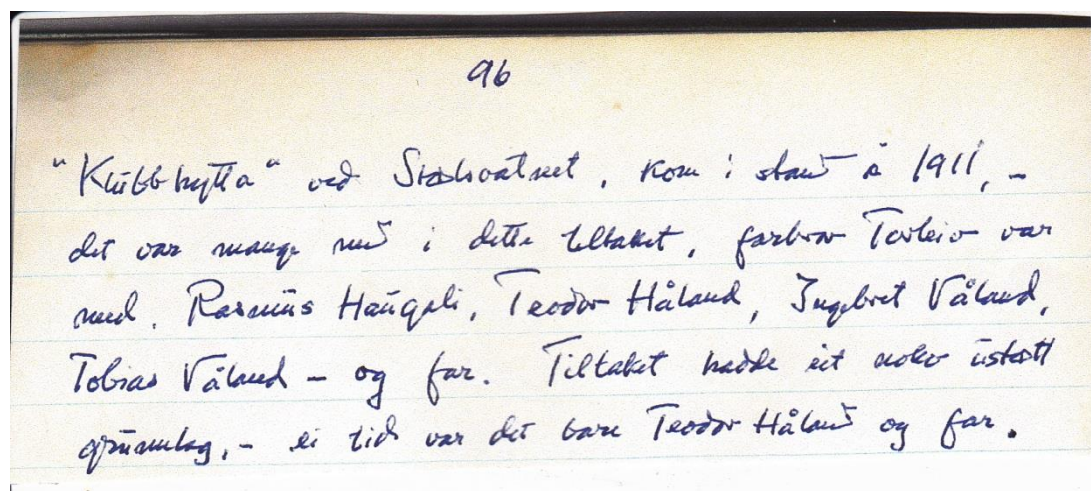 96
"Klubbhytta" ved Stølsvatnet, kom i stand å 1911, -
det var mange med i dette tiltaket, farbror Torleiv var
med. Rasmus Haugali, Teodor Håland, Ingebret Våland,
Tobias Våland - og far. Tiltaket hadde eit noko ustøtt
grunnlag, - ei tid var det bare Teodor Håland og far.